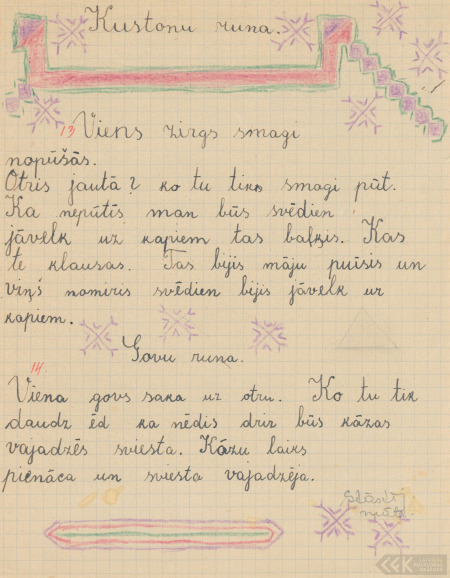 Kustonu runa.
13 Viens zirgs smagi
nopūšās.
Otris jautā? ko tu tiks smagi pūt.
Ka nepūtīs man būs svēdien
jāvelk uz kapiem tas baļķis. Kas
te klausas. Tas bijis māju puisis un
viņš nomiris svēdien bijis jāvelk uz
kapiem.
Govu runa.
14.
Viena govs saka uz otru. Ko tu tik
daudz ēd ka nēdis driz būs kāzas
vajadzēs sviesta. Kāzu laiks
pienāca un sviesta vajadzēja.